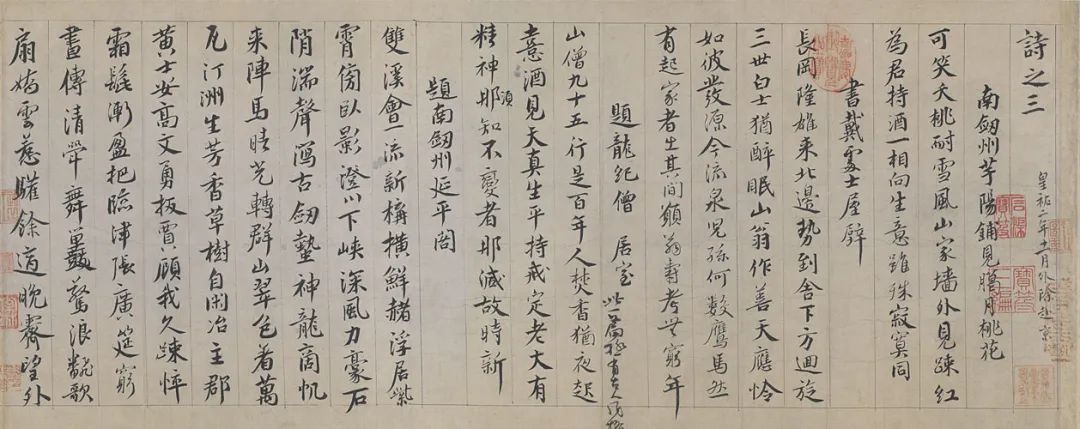 詩之三
皇祐二年十一月外除赴京
南劒州芋陽鋪見臘月桃花
可笑夭桃耐雪風山家墻外見踈紅
為君持酒一相向生意雖殊寂寞同
書戴處士屋壁
長岡隆雄来北邊勢到舍下方迴旋
三世白士猶醉眠山翁作善天應憐
如彼發源今流泉兒孫何數鷹馬然
有起家者生其間願翁壽考無窮年
題龍紀僧居室
此篇極有古人風格
山僧九十五行是百年人焚香猶夜起
憙酒見天真生平持戒定老大有
精神耶須知不變者那減故時新
題南劒州延平閣
雙溪會一流新構橫鮮赭浮居紫
霄傍卧影澄川下峽深風力豪石
陗湍聲瀉古劒蟄神龍商帆
来陣馬晴光轉群山翠色着萬
瓦汀洲生芳香草樹自閑冶主郡
黃士安高文勇扳賈顧我久踈悴
霜髭漸盈把臨津張廣筵窮
晝傳清斝舞鼉驚浪翻歌
扇嬌雲惹驩餘適晚霽望外